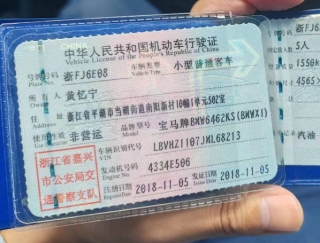 中华人民共和国机动车行驶证
Vehicle License of the People's Republic of China
号牌号码 浙FJ6E08 车辆类型 小型普通客车
Plate No. Vehicle Type
所有人 黄忆宁
Owner
住址 浙江省平湖市当湖街道南阳新村10幢1单元502室
Address
使用性质 非营运 品牌型号 宝马牌BMW6462KS(BMWX1)
浙江省嘉兴
市公安局交
通警察支队
车辆识别代号 LBVHZ1107JML68213
VIN
发动机号码 4334E506
Engine No.
注册日期 2018-11-05 发证日期 2018-11-05
号牌号码 浙FJ
5人
1550k
4565×
汽油